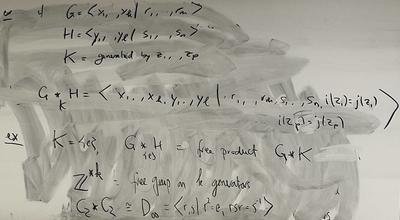 ex if G = <x₁, .., x_k | r₁, .., r_m>
H = <y₁, .., y_ℓ | s₁, .., s_n>
K = generated by z₁, .., z_p
G *_K H = < x₁, .., x_k, y₁, .., y_ℓ | r₁, .., r_m, s₁, .., s_n, i(z₁) = j(z₁)
i(z_p) = j(z_p) >
ex K = {e} G *_{e} H = free product G * K
ℤ^{*k} = free group on k generators
C₂ * C₂ ≅ D_∞ = <r, s | r² = e, rsr = s⁻¹>